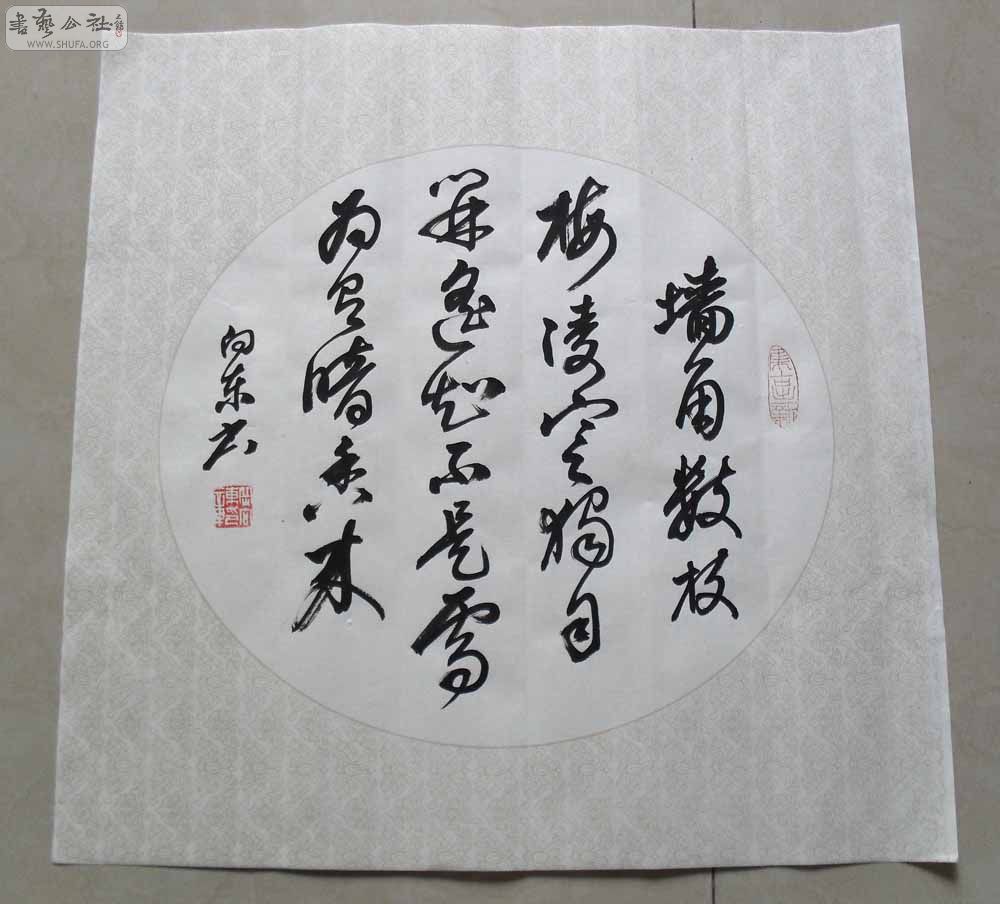 墙角数枝
梅凌寒独自
開遥知不是雪
为有暗香来
向东书
書藝公社
WWW.SHUFA.ORG